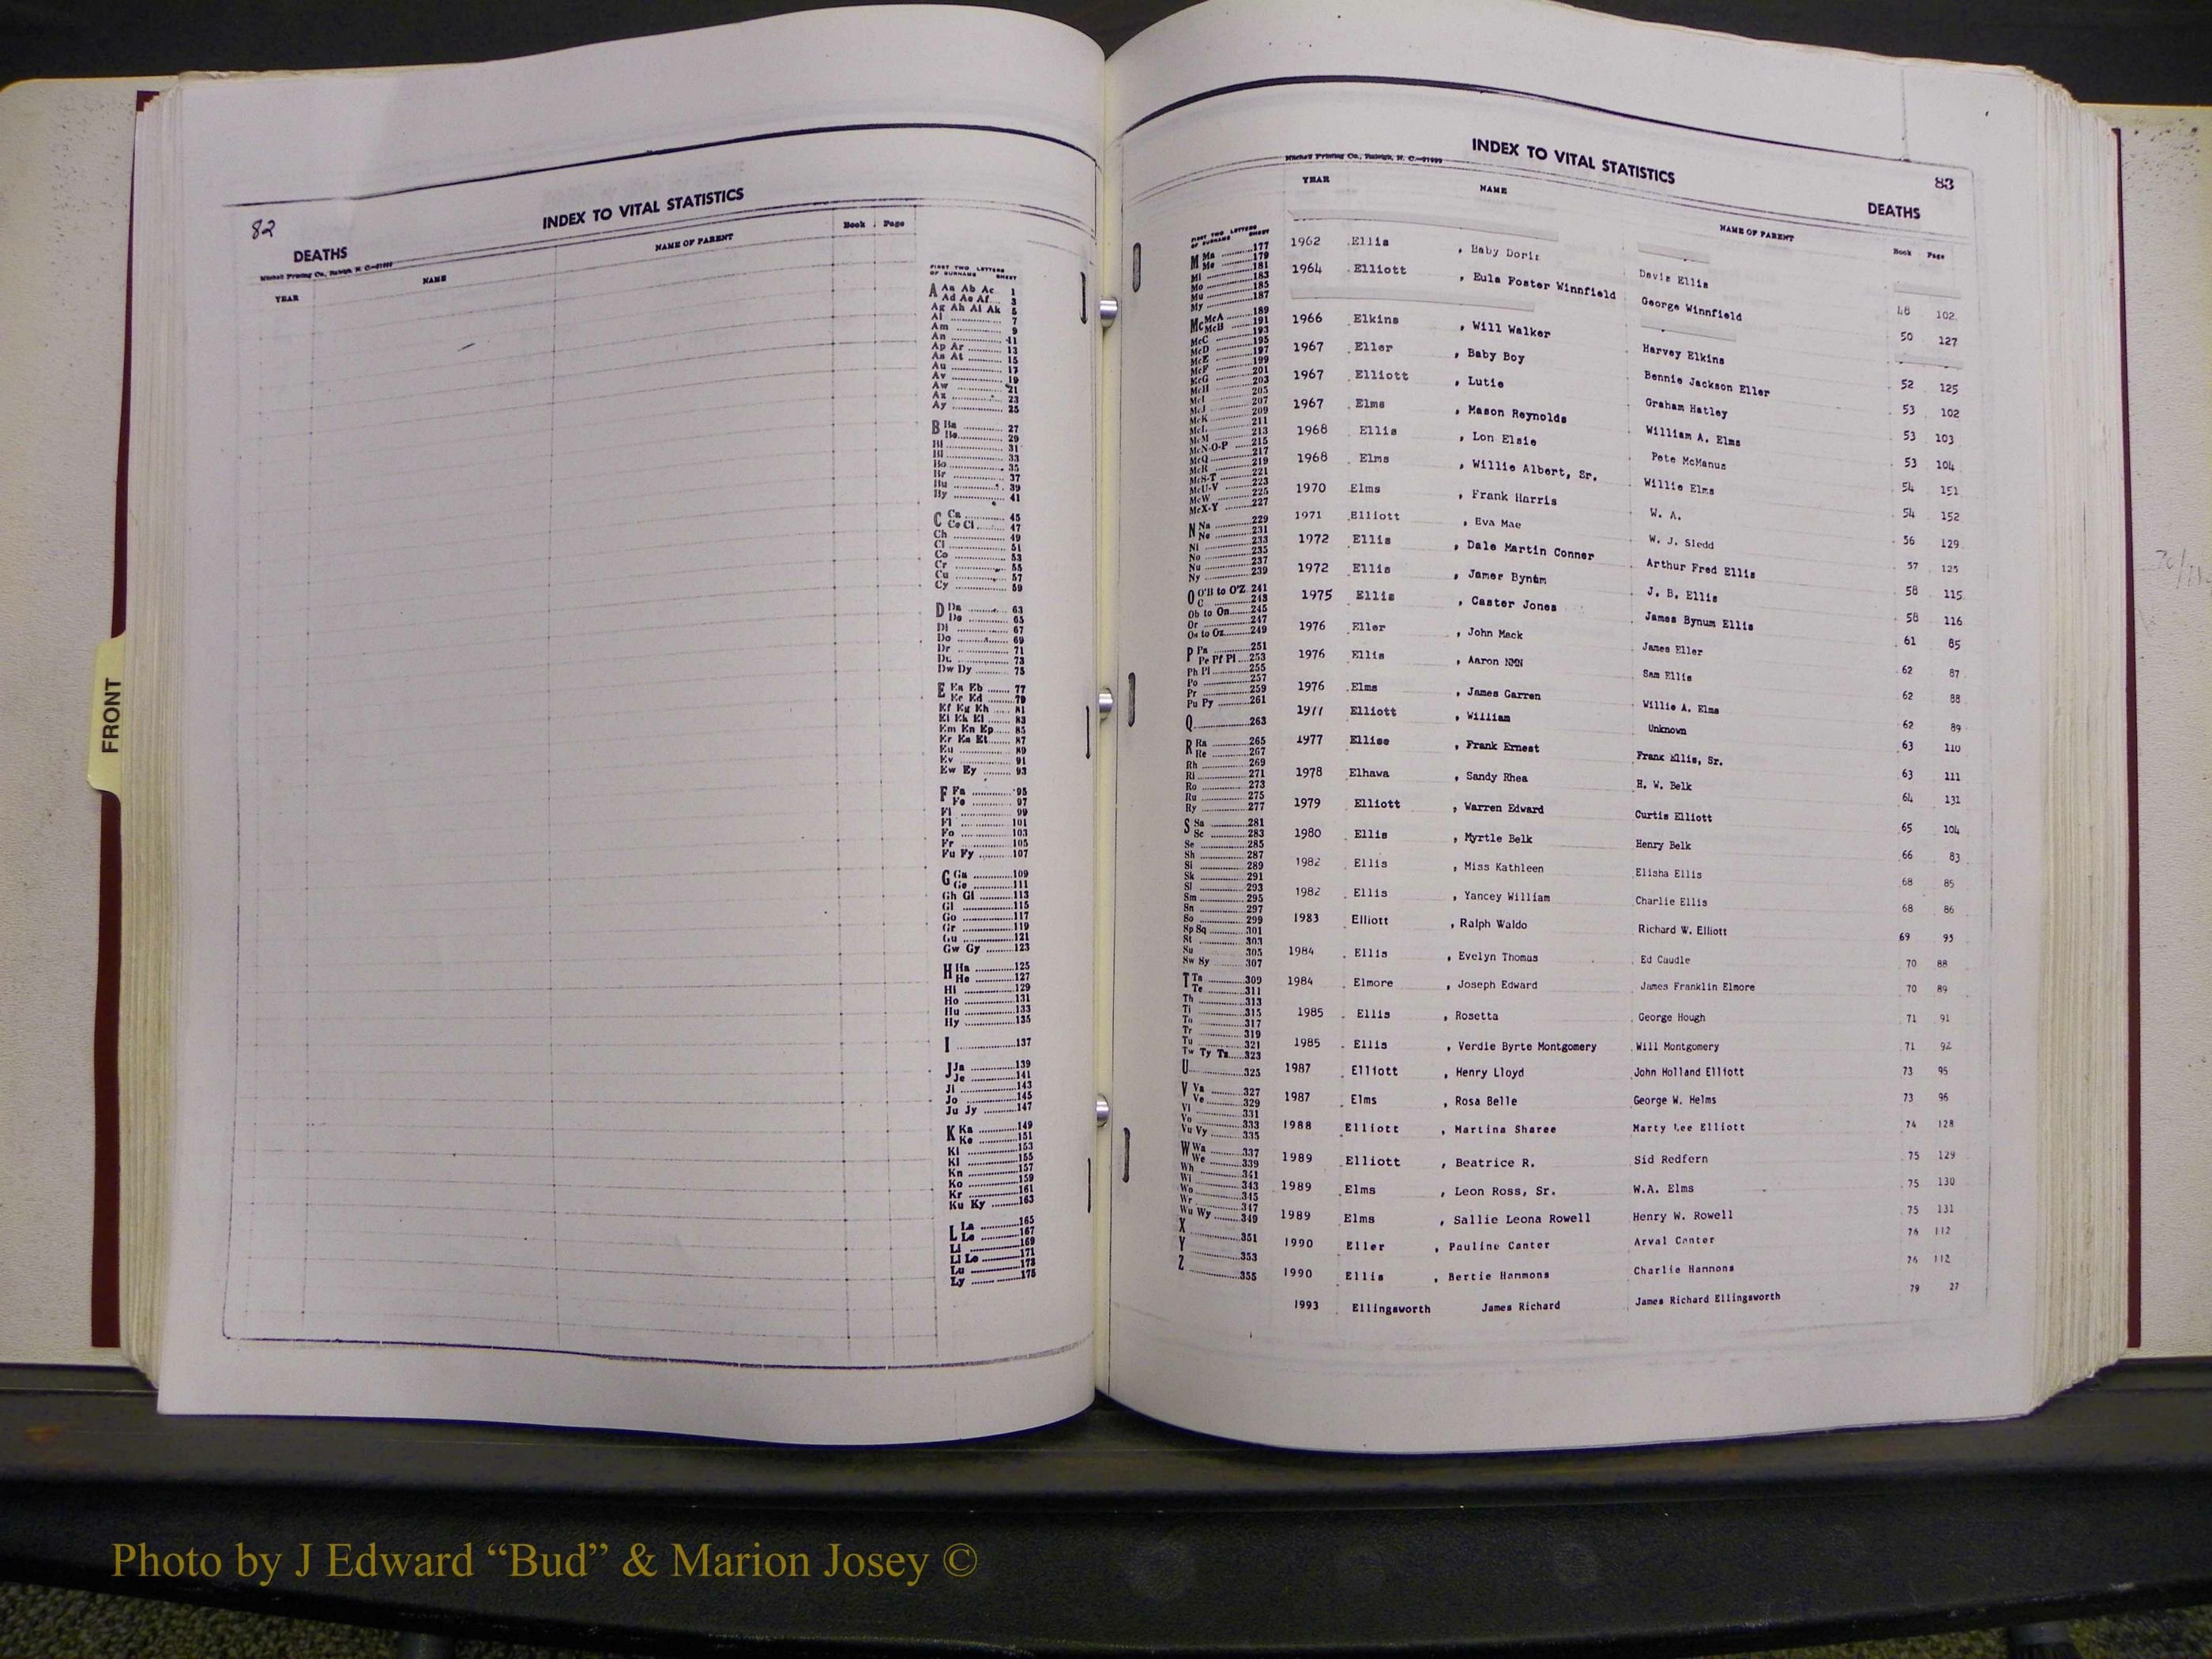 82
INDEX TO VITAL STATISTICS
DEATHS
Mitchell Printing Co., Raleigh, N. C.
YEAR NAME NAME OF PARENT Book Page
FIRST TWO LETTERS
OF SURNAME SHEET
A Aa Ab Ac 1
Ad Ae Af 3
Ag Ah Ai Ak 5
Al 7
Am 9
An 11
Ap Ar 13
As At 15
Au 17
Av 19
Aw 21
Ax 23
Ay 25
B Ba 27
Be 29
Bi 31
Bl 33
Bo 35
Br 37
Bu 39
By 41
C Ca 45
Ce Ci 47
Ch 49
Cl 51
Co 53
Cr 55
Cu 57
Cy 59
D Da 63
De 65
Di 67
Do 69
Dr 71
Du 73
Dw Dy 75
E Ea Eb 77
Ec Ed 79
Ef Eg Eh 81
Ei Ek El 83
Em En Ep 85
Er Es Et 87
Eu 89
Ev 91
Ew Ey 93
F Fa 95
Fe 97
Fi 99
Fl 101
Fo 103
Fr 105
Fu Fy 107
G Ga 109
Ge 111
Gh Gi 113
Gl 115
Go 117
Gr 119
Gu 121
Gw Gy 123
H Ha 125
He 127
Hi 129
Ho 131
Hu 133
Hy 135
I 137
J Ja 139
Je 141
Ji 143
Jo 145
Ju Jy 147
K Ka 149
Ke 151
Ki 153
Kl 155
Kn 157
Ko 159
Kr 161
Ku Ky 163
L La 165
Le 167
Li 169
Ll Lo 171
Lu 173
Ly 175
FRONT
Mitchell Printing Co., Raleigh, N. C.
INDEX TO VITAL STATISTICS
83
DEATHS
YEAR NAME NAME OF PARENT Book Page
FIRST TWO LETTERS
OF SURNAME SHEET
M Ma 177
Me 179
Mi 181
Mo 183
Mu 185
My 187
Mc McA 189
McB 191
McC 193
McD 195
McE 197
McF 199
McG 201
McH 203
McI 205
McJ 207
McK 209
McL 211
McM 213
McN-O-P 215
McQ 217
McR 219
McS-T 221
McU-V 223
McW 225
McX-Y 227
N Na 229
Ne 231
Ni 233
No 235
Nu 237
Ny 239
O O'B to O'Z 241
C 243
Ob to On 245
Or 247
Os to Oz 249
P Pa 251
Pe Pf Pi 253
Ph Pl 255
Po 257
Pr 259
Pu Py 261
Q 263
R Ra 265
Re 267
Rh 269
Ri 271
Ro 273
Ru 275
Ry 277
S Sa 281
Sc 283
Se 285
Sh 287
Si 289
Sk 291
Sl 293
Sm 295
Sn 297
So 299
Sp Sq 301
St 303
Su 305
Sw Sy 307
T Ta 309
Te 311
Th 313
Ti 315
To 317
Tr 319
Tu 321
Tw Ty Tz 323
U 325
V Va 327
Ve 329
Vi 331
Vo 333
Vu Vy 335
W Wa 337
We 339
Wh 341
Wi 343
Wo 345
Wr 347
Wu Wy 349
X 351
Y 353
Z 355
1962 Ellis , Baby Doris Davis Ellis 48 102
1964 Elliott , Eula Foster Winnfield George Winnfield 50 127
1966 Elkins , Will Walker Harvey Elkins 52 125
1967 Eller , Baby Boy Bennie Jackson Eller 53 102
1967 Elliott , Lutie Graham Hatley 53 103
1967 Elms , Mason Reynolds William A. Elms 53 104
1968 Ellis , Lon Elsie Pete McManus 54 151
1968 Elms , Willie Albert, Sr. Willie Elms 54 152
1970 Elms , Frank Harris W. A. 56 129
1971 Elliott , Eva Mae W. J. Sledd 57 125
1972 Ellis , Dale Martin Conner Arthur Fred Ellis 58 115
1972 Ellis , James Bynum J. B. Ellis 58 116
1975 Ellis , Caster Jones James Bynum Ellis 61 85
1976 Eller , John Mack James Eller 62 87
1976 Ellis , Aaron NMN Sam Ellis 62 88
1976 Elms , James Garren Willie A. Elms 62 89
1977 Elliott , William Unknown 63 110
1977 Ellise , Frank Ernest Frank Ellis, Sr. 63 111
1978 Elhawa , Sandy Rhea H. W. Belk 64 131
1979 Elliott , Warren Edward Curtis Elliott 65 104
1980 Ellis , Myrtle Belk Henry Belk 66 83
1982 Ellis , Miss Kathleen Elisha Ellis 68 85
1982 Ellis , Yancey William Charlie Ellis 68 86
1983 Elliott , Ralph Waldo Richard W. Elliott 69 95
1984 Ellis , Evelyn Thomas Ed Caudle 70 88
1984 Elmore , Joseph Edward James Franklin Elmore 70 89
1985 Ellis , Rosetta George Hough 71 91
1985 Ellis , Verdie Byrte Montgomery Will Montgomery 71 92
1987 Elliott , Henry Lloyd John Holland Elliott 73 95
1987 Elms , Rosa Belle George W. Helms 73 96
1988 Elliott , Martina Sharee Marty Lee Elliott 74 128
1989 Elliott , Beatrice R. Sid Redfern 75 129
1989 Elms , Leon Ross, Sr. W.A. Elms 75 130
1989 Elms , Sallie Leona Rowell Henry W. Rowell 75 131
1990 Eller , Pauline Canter Arval Canter 76 112
1990 Ellis , Bertie Hammons Charlie Hammons 76 112
1993 Ellingsworth James Richard James Richard Ellingsworth 79 27
Photo by J Edward “Bud” & Marion Josey ©